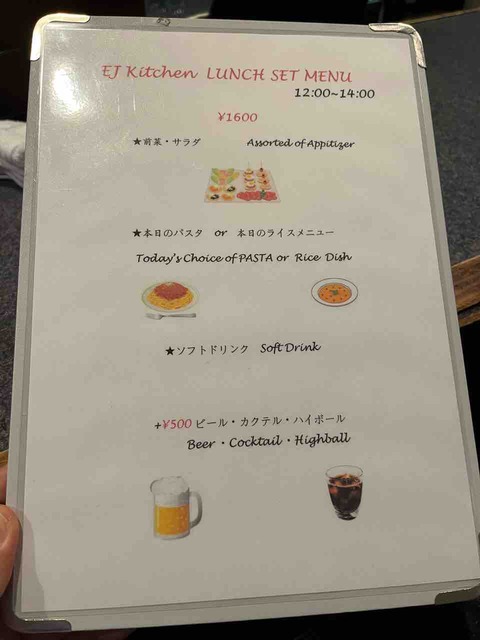 EJ Kitchen LUNCH SET MENU
12:00~14:00
¥1600
★前菜・サラダ Assorted of Appitizer
★本日のパスタ or 本日のライスメニュー
Today's Choice of PASTA or Rice Dish
★ソフトドリンク Soft Drink
+¥500 ビール・カクテル・ハイボール
Beer・Cocktail・Highball